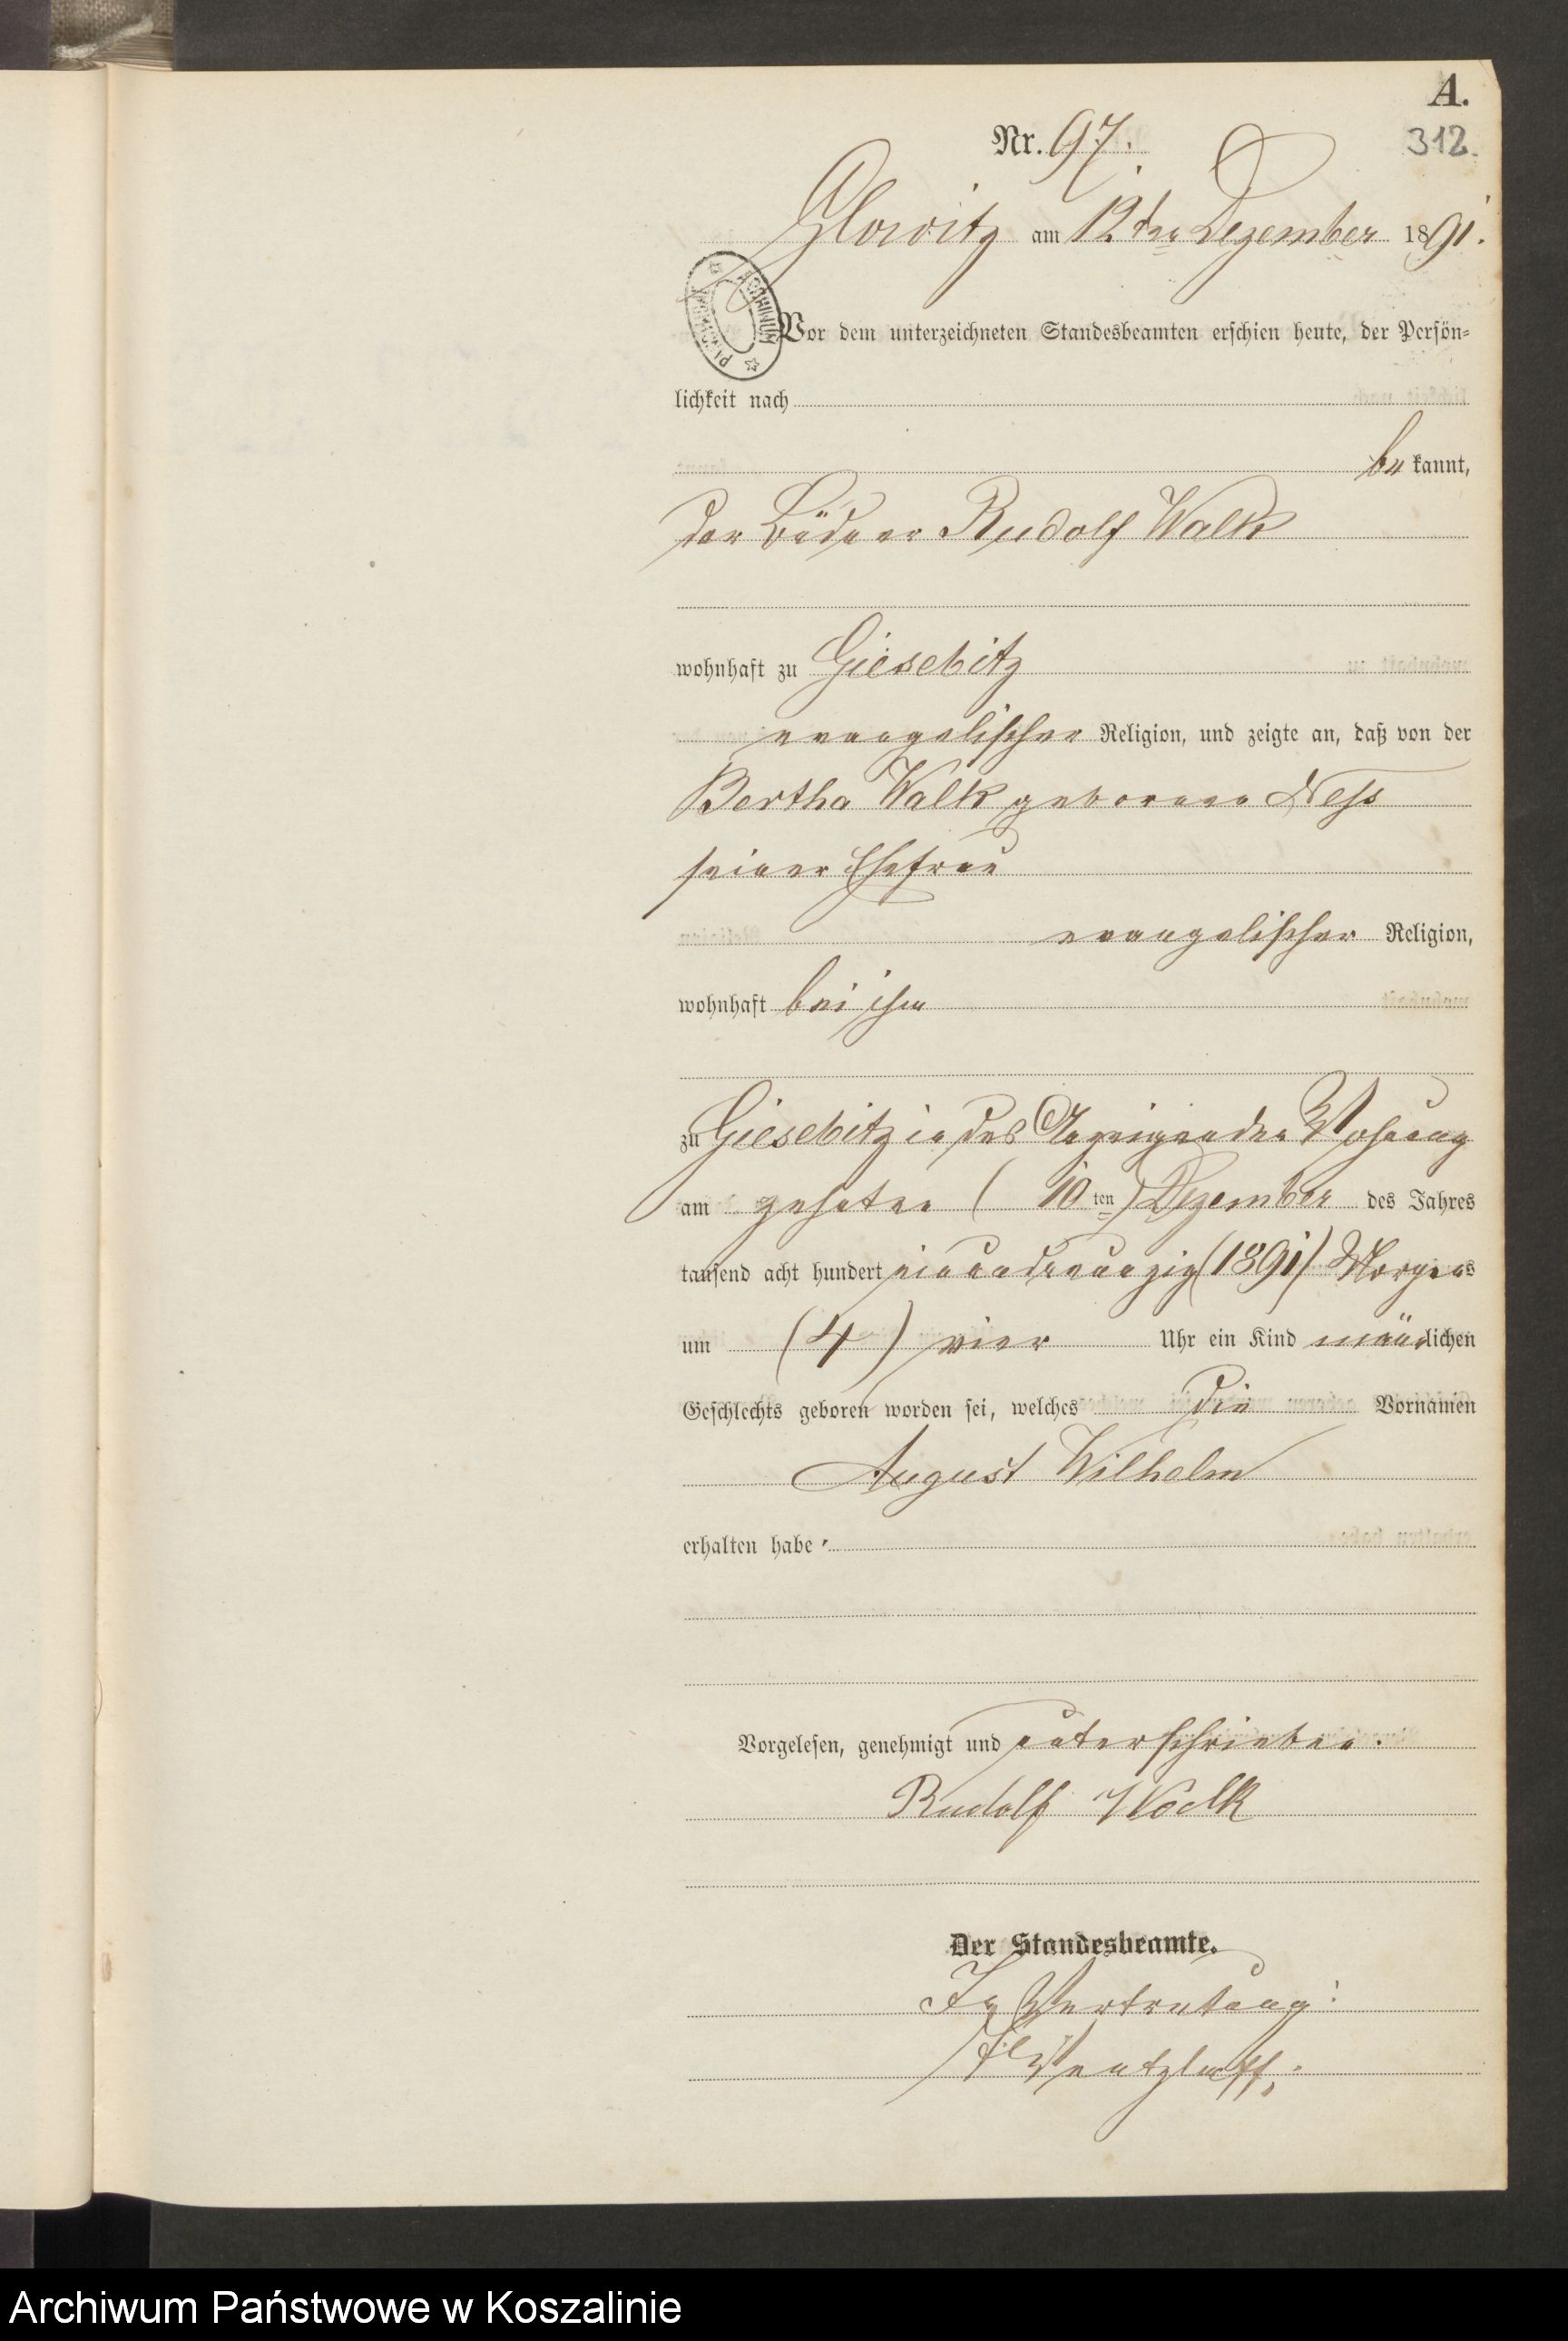 A.
Nr. 97.
312.
Glowitz am 12ten Dezember 1891.
ARCHIWUM
Vor dem unterzeichneten Standesbeamten erschien heute, der Persön-
lichkeit nach
be kannt,
der Büdner Rudolf Walk
wohnhaft zu Giesebitz
evangelischer Religion, und zeigte an, daß von der
Bertha Walk geborene Ness
seiner Ehefrau
evangelischer Religion,
wohnhaft bei ihm
zu Giesebitz in des Anzeigenden Wohnung
am zehnten (10ten) Dezember des Jahres
tausend acht hundert einundneunzig (1891) Morgens
um (4) vier Uhr ein Kind männlichen
Geschlechts geboren worden sei, welches die Vornamen
August Wilhelm
erhalten habe.
Vorgelesen, genehmigt und unterschrieben.
Rudolf Walk
Der Standesbeamte.
In Vertretung:
Wentzlaff.
Archiwum Państwowe w Koszalinie